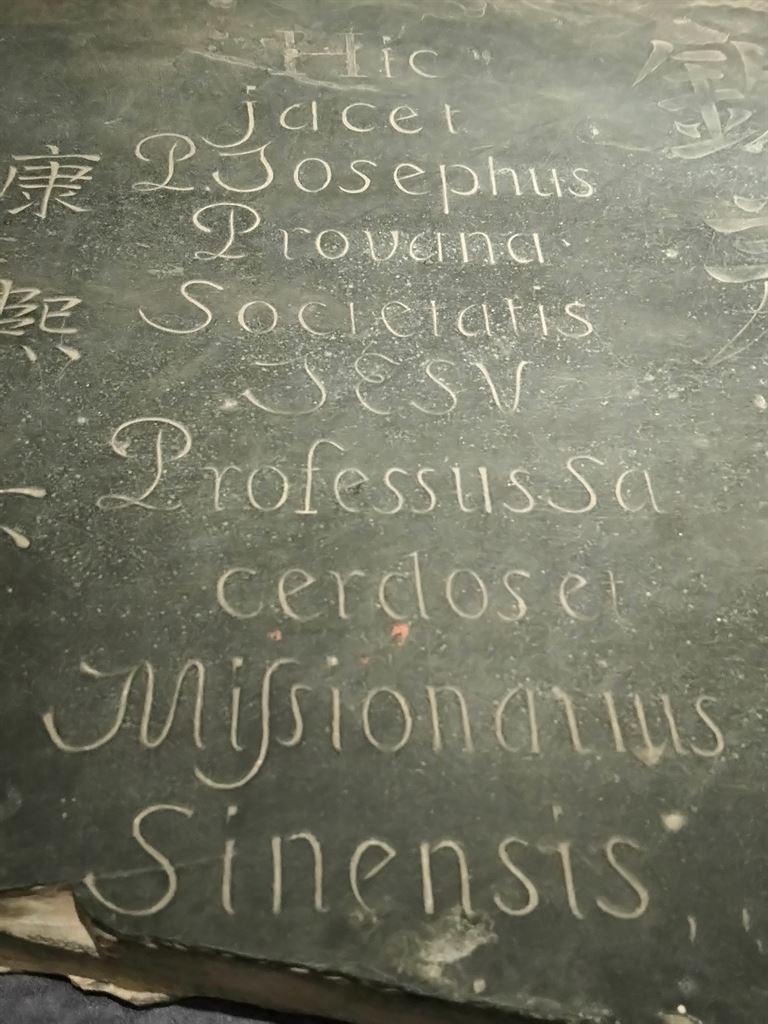 Hic
jacet
P. Josephus
Provana
Societatis
JESV
Professus Sa
cerdos et
Miſsionarius
Sinensis
康熙